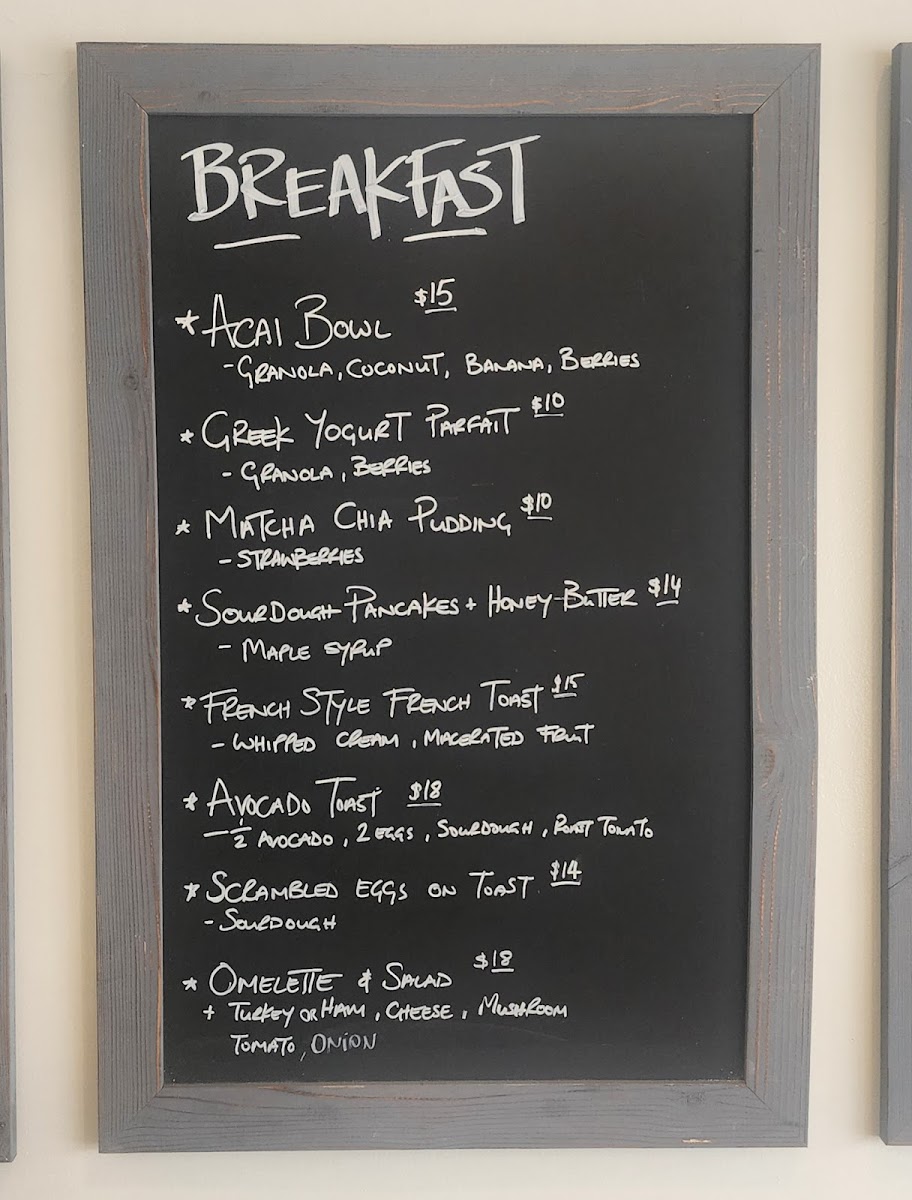 BREAKFAST
* ACAI BOWL $15
- GRANOLA, COCONUT, BANANA, BERRIES
* GREEK YOGURT PARFAIT $10
- GRANOLA, BERRIES
* MATCHA CHIA PUDDING $10
- STRAWBERRIES
* SOURDOUGH PANCAKES + HONEY BUTTER $14
- MAPLE SYRUP
* FRENCH STYLE FRENCH TOAST $15
- WHIPPED CREAM, MACERATED FRUIT
* AVOCADO TOAST $18
- 1/2 AVOCADO, 2 EGGS, SOURDOUGH, ROAST TOMATO
* SCRAMBLED EGGS ON TOAST $14
- SOURDOUGH
* OMELETTE & SALAD $18
+ TURKEY OR HAM, CHEESE, MUSHROOM
TOMATO, ONION